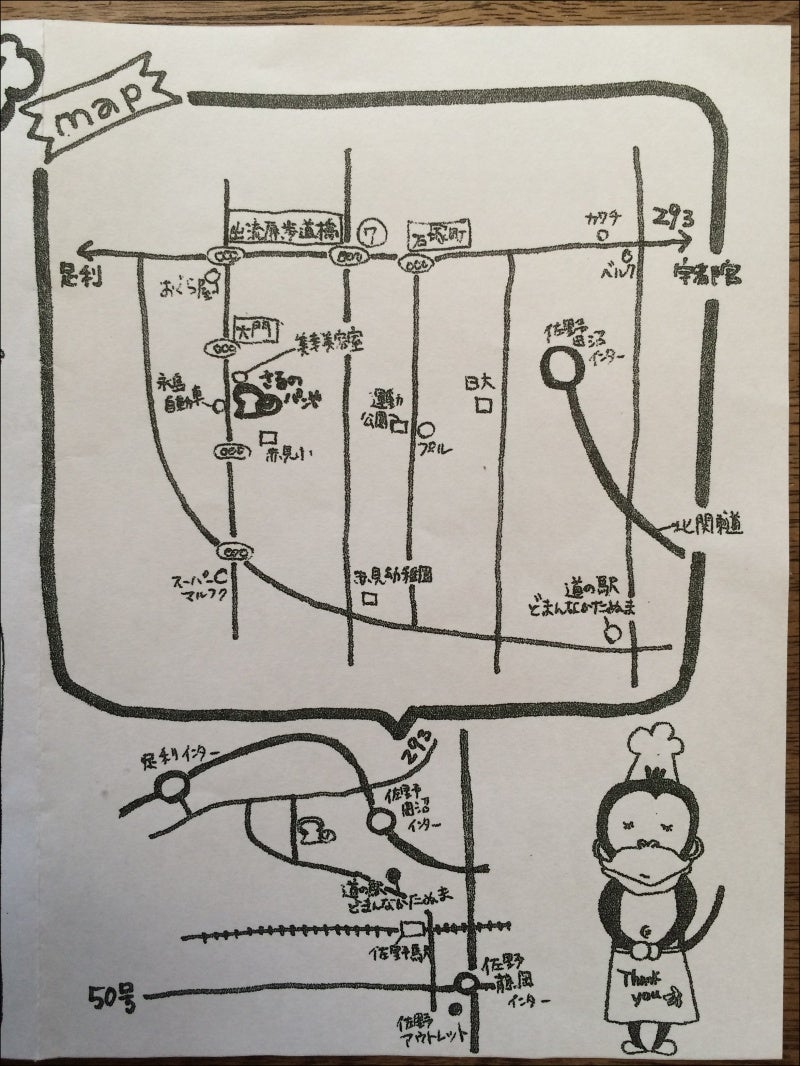 map
出流原歩道橋
7
石塚町
カワチ
293
足利
ベルク
宇都宮
おぐら屋
大門
美幸美容室
佐野
田沼
インター
永島
自動車
さるの
パン山
運動
公園
日大
プール
赤見小
北関東道
スーパー
マルフク
赤見幼稚園
道の駅
どまんなかたぬま
足利インター
293
佐野
田沼
インター
道の駅
どまんなかたぬま
佐野駅
50号
佐野
藤岡
インター
佐野
アウトレット
Thank
you